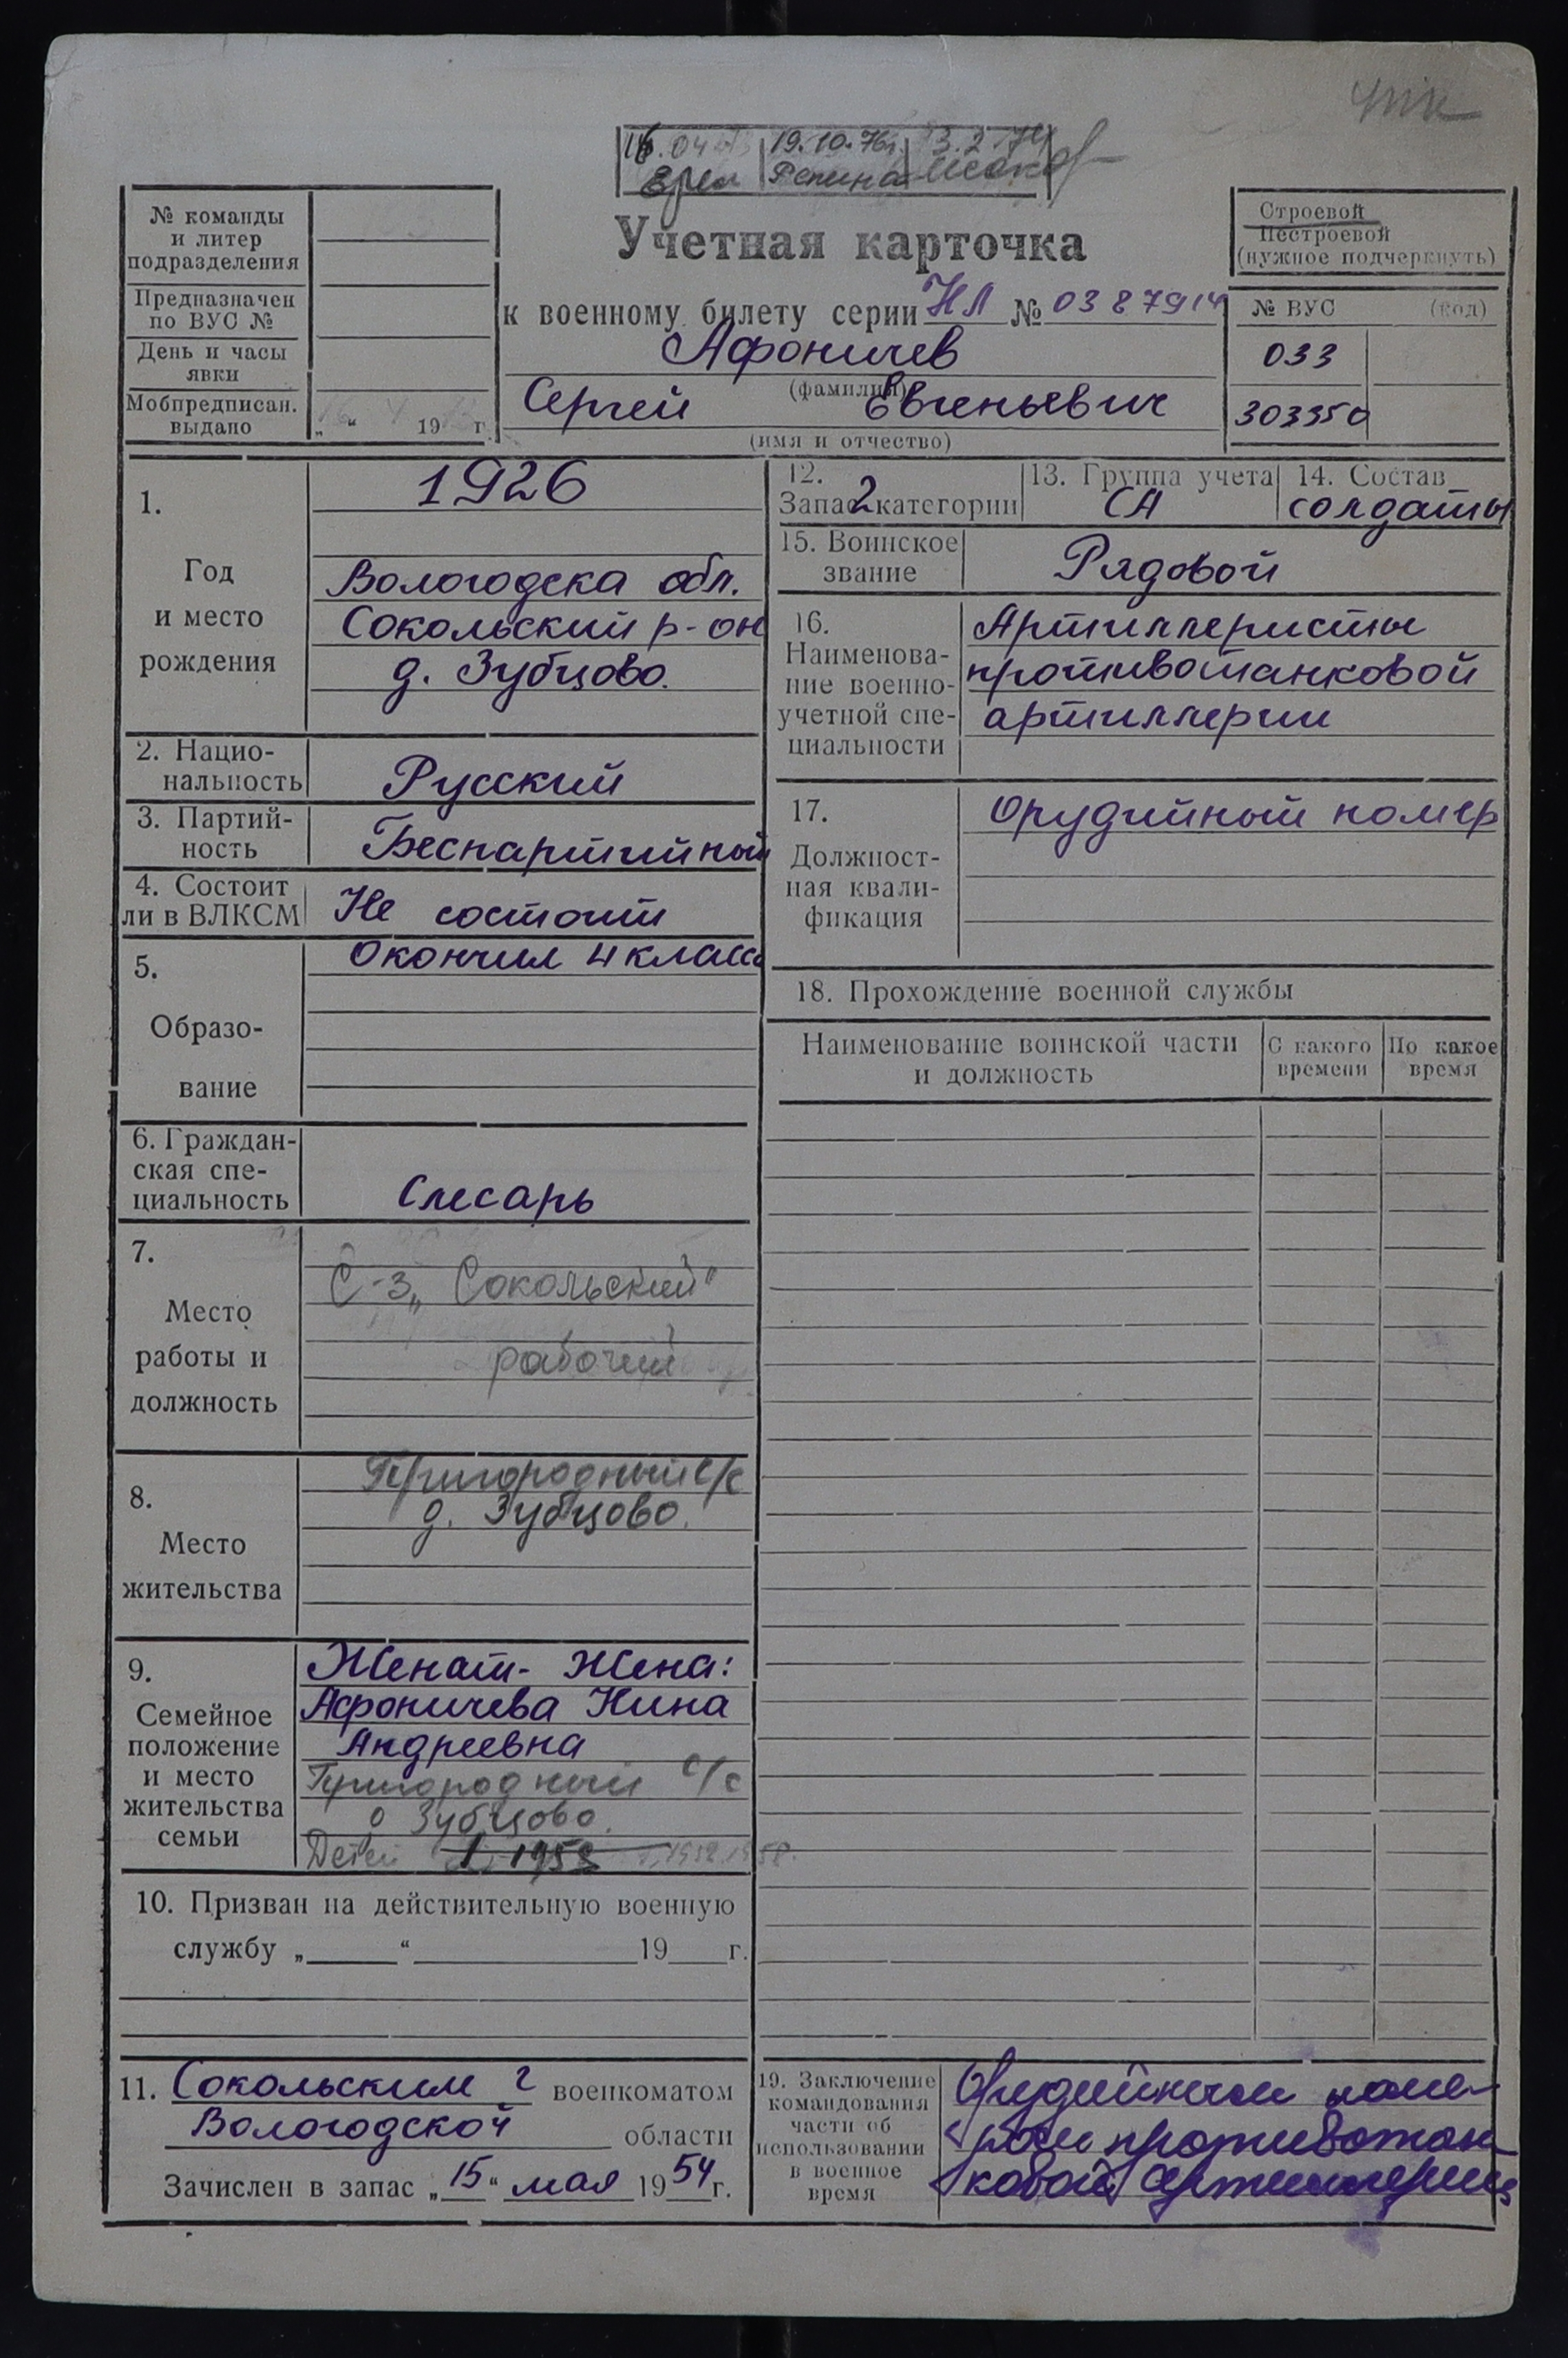 19.10.76г. 3.2.74
Репина
№ команды
и литер
подразделения
Предназначен
по ВУС №
День и часы
явки
Мобпредписан.
выдано
„ “ 19 г.
Учетная карточка
к военному билету серии НЛ № 0387914
Афоничев
(фамилия)
Сергей Евгеньевич
(имя и отчество)
Строевой
Нестроевой
(нужное подчеркнуть)
№ ВУС (код)
033
303350
1.
Год
и место
рождения
1926
Вологодска обл.
Сокольский р-он
д. Зубцово.
2. Нацио-
нальность
Русский
3. Партий-
ность
Беспартийный
4. Состоит
ли в ВЛКСМ
Не состоит
5.
Образо-
вание
Окончил 4 класса
6. Граждан-
ская спе-
циальность
Слесарь
7.
Место
работы и
должность
С-з „Сокольский“
рабочий
8.
Место
жительства
Пригородный с/с
д. Зубцово.
9.
Семейное
положение
и место
жительства
семьи
Женат - Жена:
Афоничева Нина
Андреевна
Пригородный с/с
Зубцово.
Детей 1
10. Призван на действительную военную
службу „ “ 19 г.
11. Сокольским г военкоматом
Вологодской области
Зачислен в запас „15“ мая 1954 г.
12.
Запас 2 категории
13. Группа учета
СА
14. Состав
солдаты
15. Воинское
звание
Рядовой
16.
Наименова-
ние военно-
учетной спе-
циальности
Артиллеристы
противотанковой
артиллерии
17.
Должност-
ная квали-
фикация
Орудийный номер
18. Прохождение военной службы
Наименование воинской части
и должность
С какого
времени
По какое
время
19. Заключение
командования
части об
использовании
в военное
время
Орудийным номе-
ром противотан-
ковой артиллерии